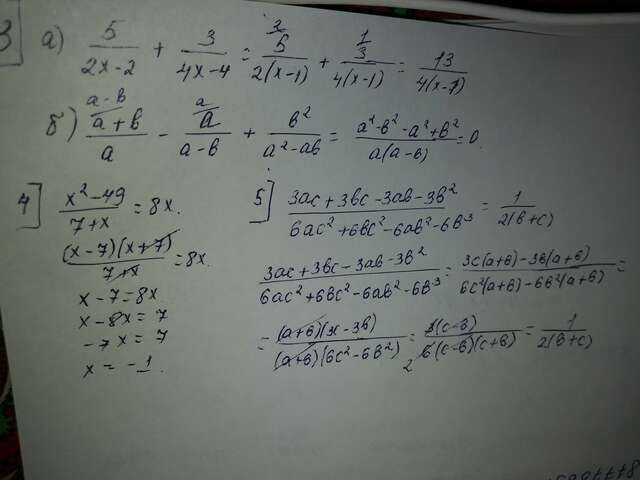 3
а) 5/(2x-2) + 3/(4x-4) = 5/(2(x-1)) + 3/(4(x-1)) = 13/(4(x-1))
б) (a+b)/a - a/(a-b) + b²/(a²-ab) = (a²-b²-a²+b²)/(a(a-b)) = 0.
4] (x²-49)/(7+x) = 8x.
(x-7)(x+7)/(7+x) = 8x.
x-7=8x
x-8x=7
-7x=7
x=-1.
5] (3ac+3bc-3ab-3b²)/(6ac²+6bc²-6ab²-6b³) = 1/(2(b+c))
(3ac+3bc-3ab-3b²)/(6ac²+6bc²-6ab²-6b³) = (3c(a+b)-3b(a+b))/(6c²(a+b)-6b²(a+b)) =
= (a+b)(3c-3b)/((a+b)(6c²-6b²)) = 3(c-b)/(6(c-b)(c+b)) = 1/(2(b+c))